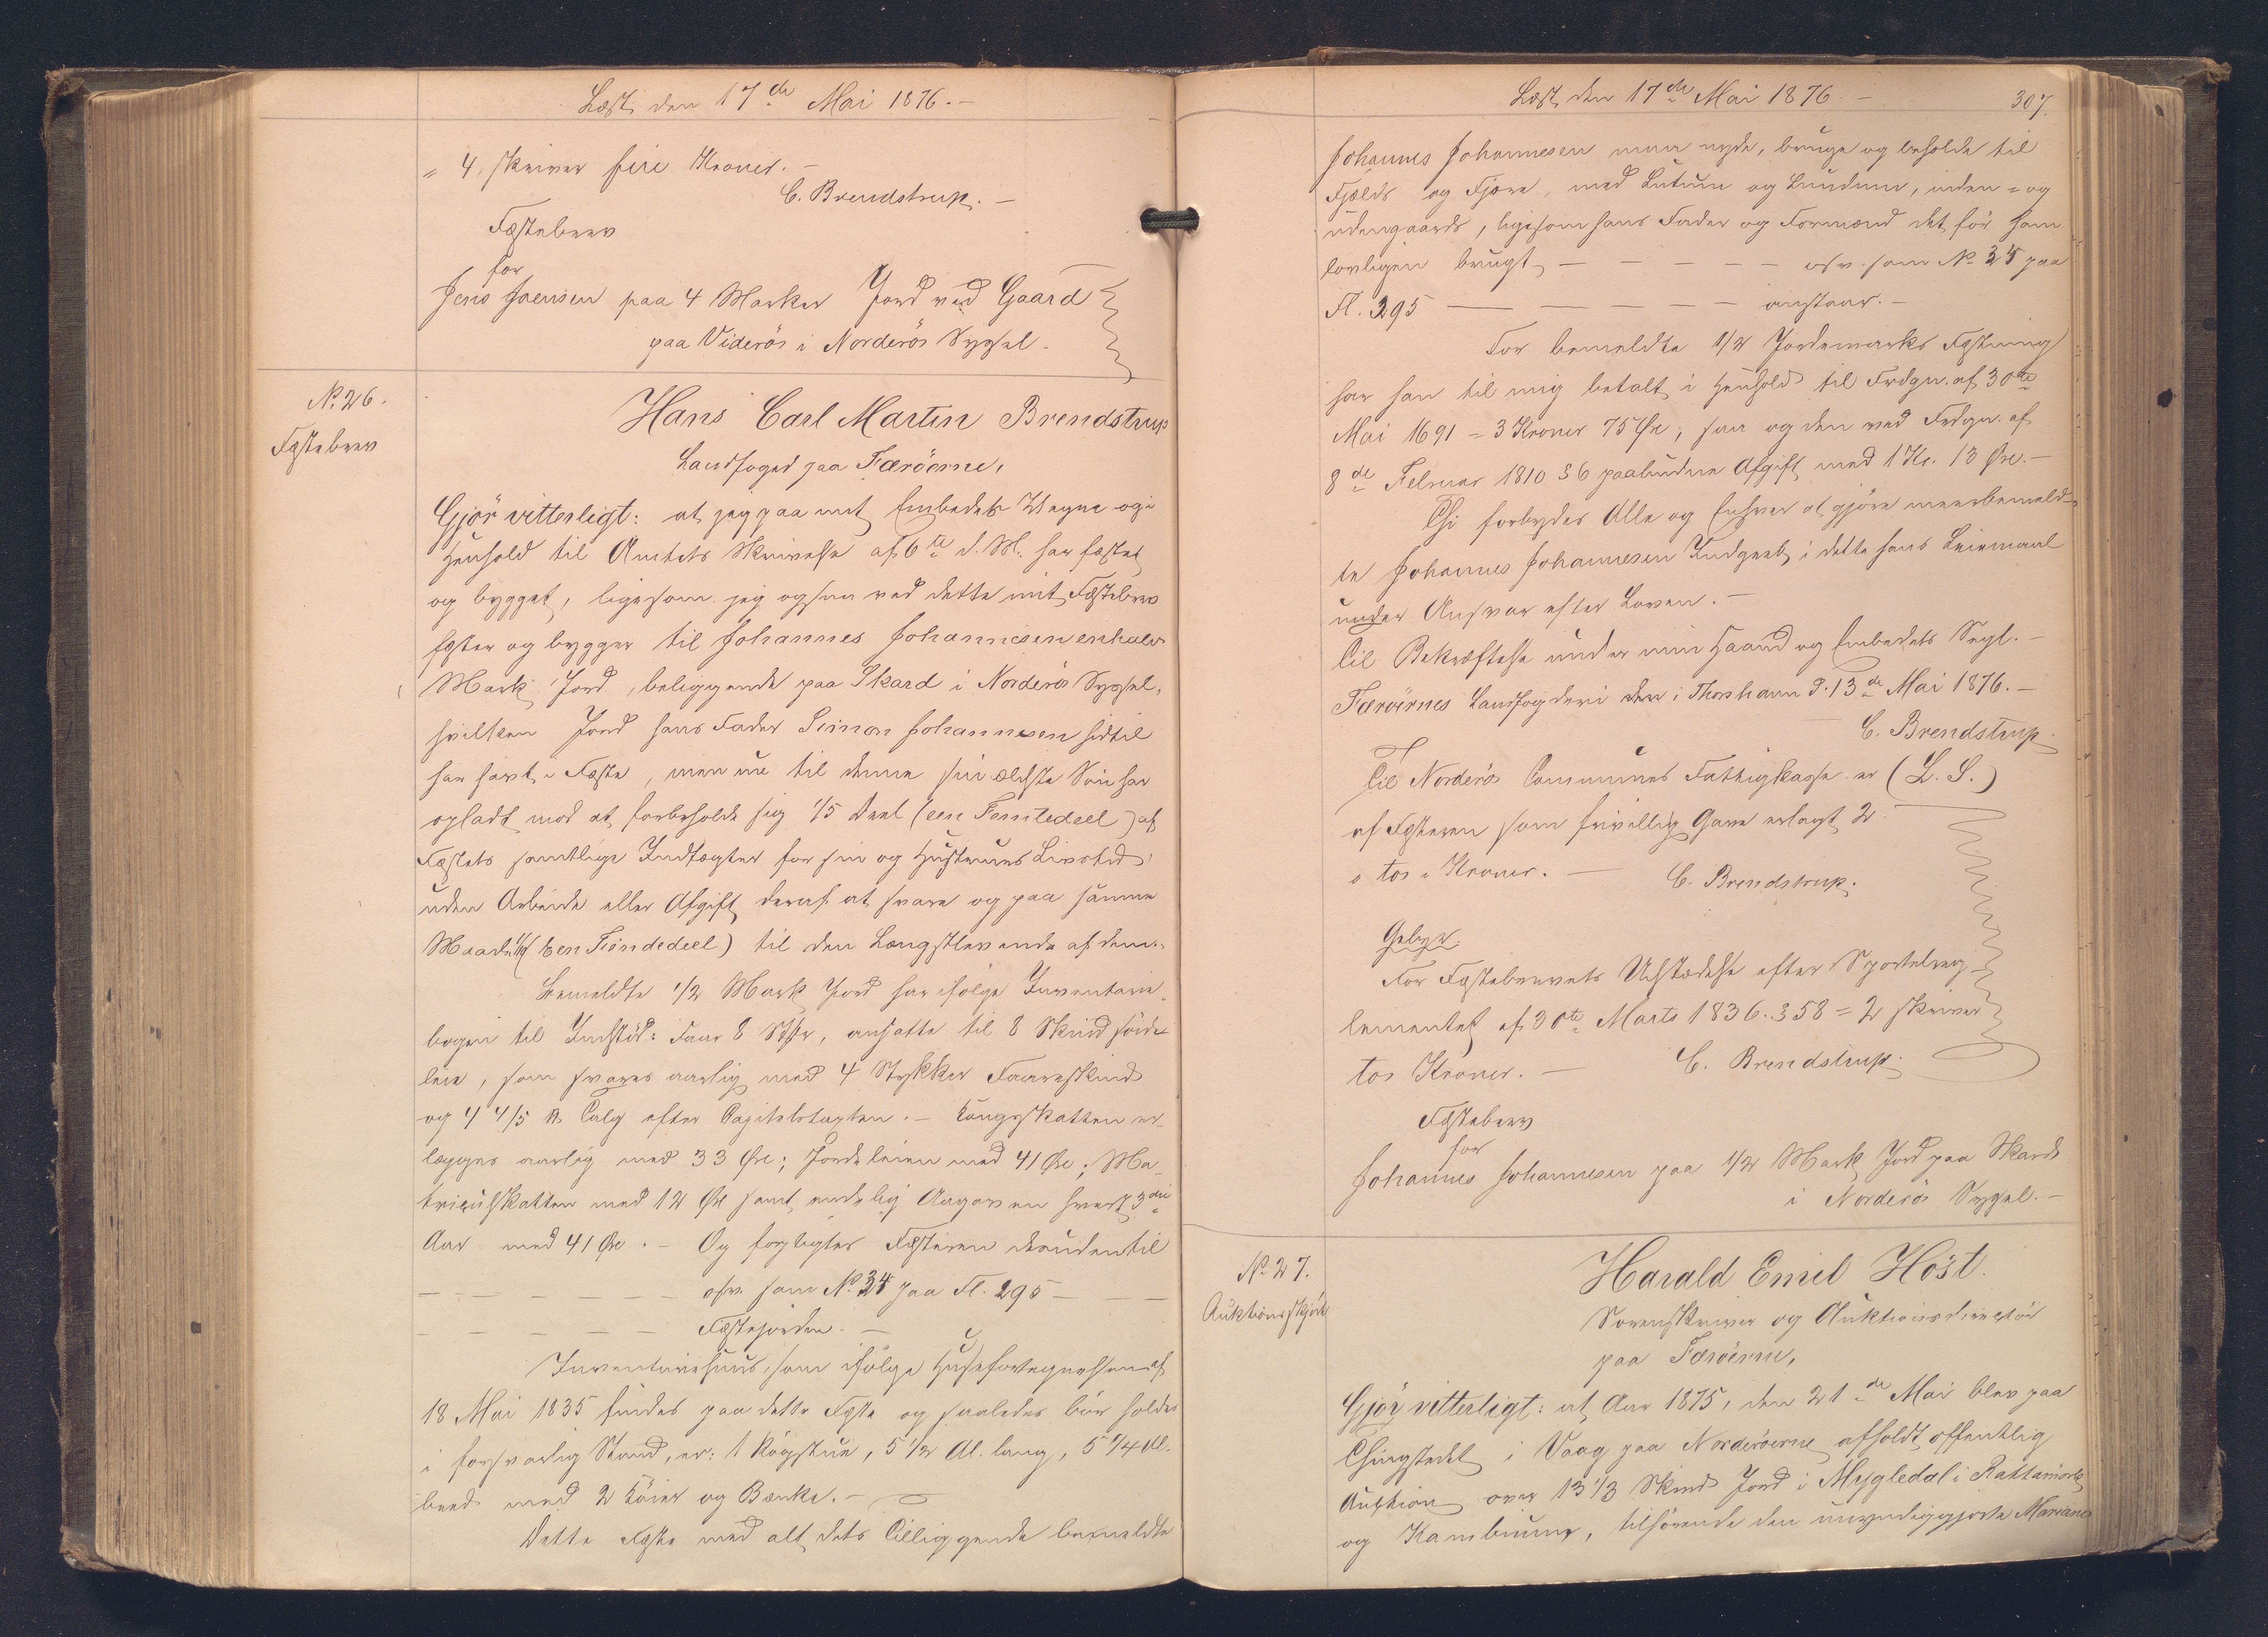 Læst den 17de Mai 1876.-
= 4, skriver fire Kroner. -
C. Brendstrup. -
Fæstebrev
for
Jens Joensen paa 4 Marker Jord ved Gaard
paa Viderös i Norderös Syssel.
No. 26.
Fæstebrev
Hans Carl Martin Brendstrup
Landfoged paa Færöerne,
Gjör vitterligt: at jeg paa mit Embedets Vegne og i
Henhold til Amtets Skrivelse af 6te d. M. har fæstet
og bygget, ligesom jeg ogsaa ved dette mit Fæstebrev
fæster og bygger til Johannes Johannesen enhalv
Mark Jord, beliggende paa Skard i Norderös Syssel,
hvilken Jord hans Fader Simon Johannesen hidtil
har havt i Fæste, men nu til denne sin ældste Sön har
opladt mod at forbeholde sig 1/5 Deel (een Femtedeel) af
Fæstets samtlige Indtægter for sin og Hustrues Livstid,
uden Arbeide eller Afgift deraf at svare og paa samme
Maade 1/10 (Een Tiendedeel) til den Længstlevende af dem.
Bemeldte 1/2 Mark Jord har ifölge Inventarie-
bogen til Indstöd: Faar 8 Stkr, ansatte til 8 Skind föide-
leie, som svares aarlig med 4 Stykker Faareskind
og 4 4/5 ℔ Talg efter Capitelstaxten. - Kongsskatten er-
lægges aarlig med 33 Øre; Jordeleien med 41 Øre; Ma-
triculskatten med 12 Øre samt endelig Aagaven hvert 3die
Aar med 41 Øre. - Og forpligtes Fæsteren desuden til
- - - - - - osv. som No. 24 paa Fl. 295 - - -
- - - - - Fæstejorden. -
Inventariehuus, som ifölge Husefortegnelsen af
18 Mai 1835 findes paa dette Fæste og saaledes bör holdes
i forsvarlig Stand, er: 1 Rögstue, 5 1/2 Al. lang, 5 1/4 Al.
bred med 2 Köier og Bænke. -
Dette Fæste med alt dets Tilliggende bemeldte
Læst den 17de Mai 1876. -
307.
Johannes Johannesen maa nyde, bruge og beholde til
Fjelds og Fjære, med Lutum og Lundum, inden- og
udengaards, ligesom hans Fader og Formænd det för ham
lovligen brugt - - - - - osv. som No. 24 paa
Fl. 295 - - - - - anstaar. -
For bemeldte 1/2 Jordemarks Fæstning
har han til mig betalt i Henhold til Frdgn. af 30te
Mai 1691 = 3 Kroner 75 Øre; saa og den ved Frdgn. af
8de Februar 1810 § 6 paabudne Afgift med 1 Kr. 13 Øre. -
Thi forbydes Alle og Enhver at gjöre meerbemeld-
te Johannes Johannesen Indgreb i dette hans Leiemaal
under Ansvar efter Loven. -
Til Bekræftelse under min Haand og Embedets Segl. -
Færöernes Landfogderi i Thorshavn d. 13de Mai 1876. -
C. Brendstrup.
(L. S.)
Til Norderös Communes Fattigkasse er
af Fæsteren som frivillig Gave erlagt 2
" to " Kroner. -
C. Brendstrup.
Gebyr.
For Fæstebrevets Udstædelse efter Sportelreg-
lementet af 30te Marts 1836. § 58 = 2 skriver
to Kroner. -
C. Brendstrup.
Fæstebrev
for
Johannes Johannesen paa 1/2 Mark Jord paa Skard
i Norderös Syssel. -
No. 27.
Auktionsskjöde
Harald Emil Höst.
Sorenskriver og Auktionsdirectör
paa Færöerne,
Gjör vitterligt: at Aar 1875, den 21de Mai blev paa
Thingstedet i Vaag paa Norderöerne afholdt offentlig
Auktion over 13 1/3 Skind Jord i Mygledal i
og, tilhörende den umyndiggjorte Mariane